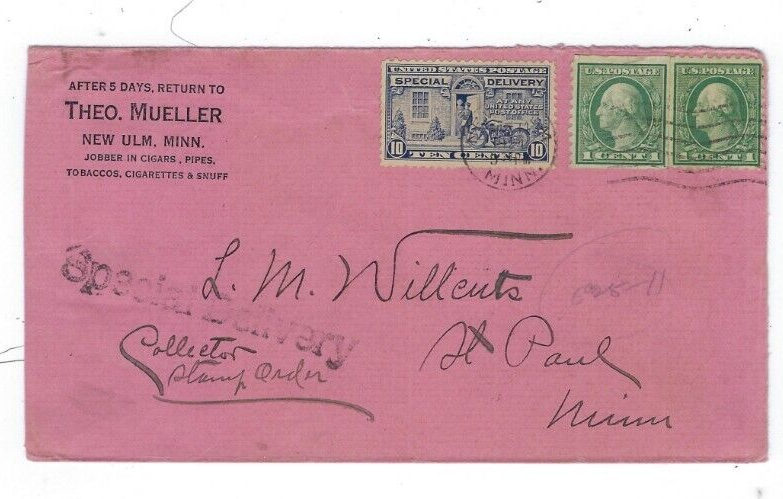 AFTER 5 DAYS, RETURN TO
THEO. MUELLER
NEW ULM, MINN.
JOBBER IN CIGARS, PIPES,
TOBACCOS, CIGARETTES & SNUFF
UNITED STATES POSTAGE
SPECIAL DELIVERY
AT ANY
UNITED STATES
POST OFFICE
10 TEN CENTS 10
U.S. POSTAGE
1 CENT 1
U.S. POSTAGE
1 CENT 1
MINN.
Special Delivery
L. M. Willcuts
Collector
Stamp Order
St Paul
Minn